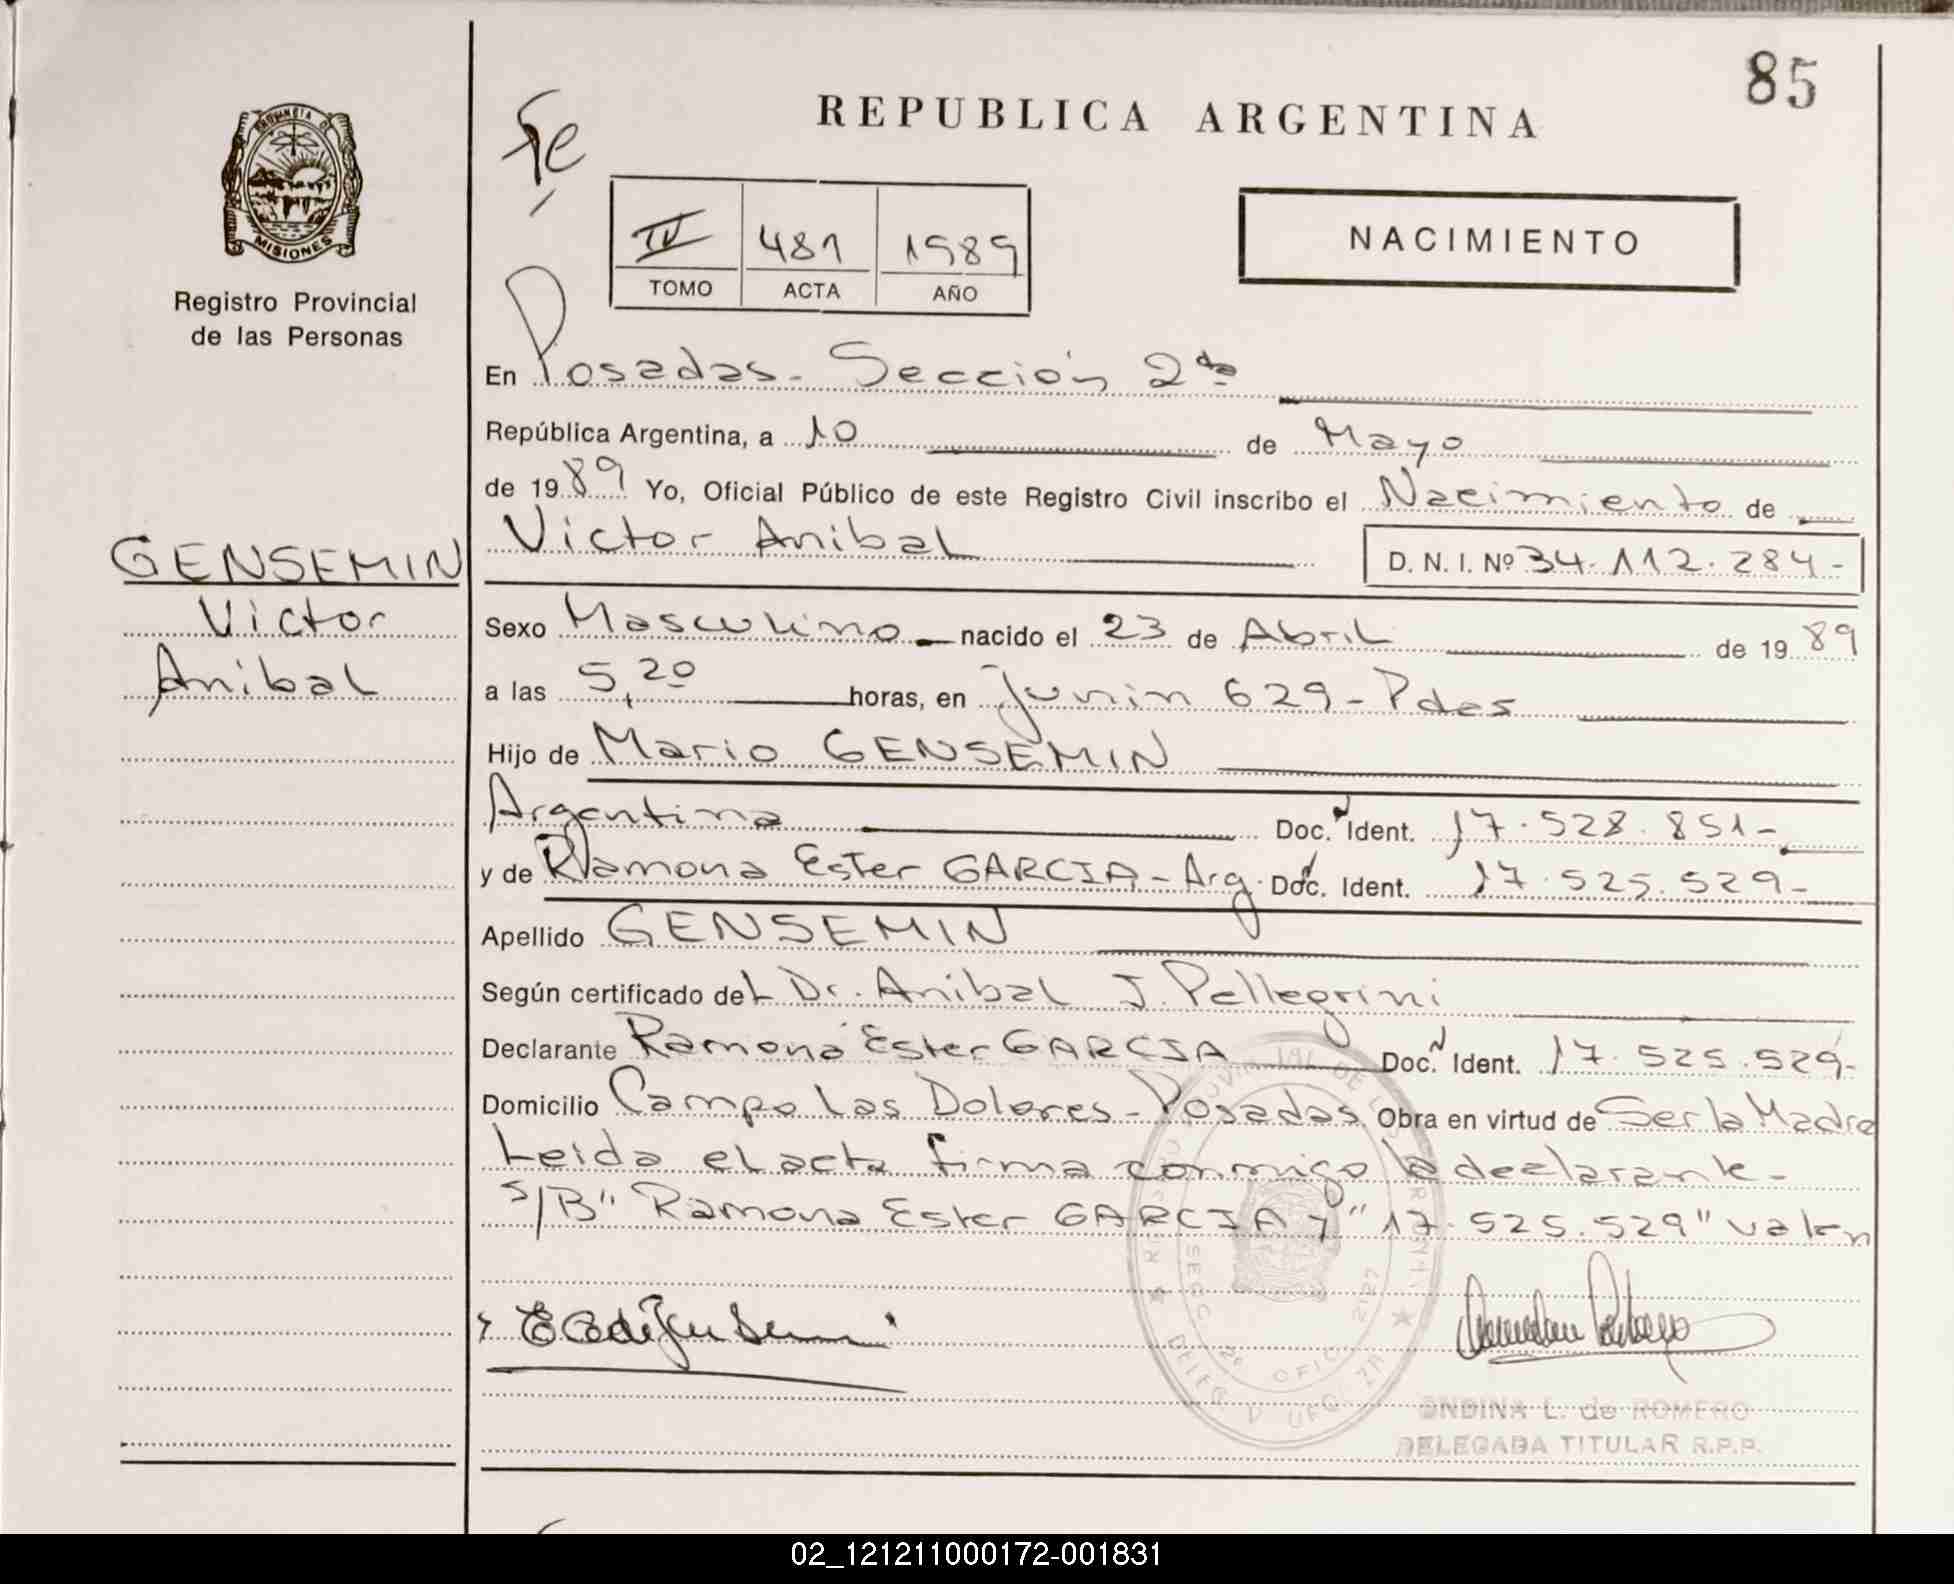 85
REPUBLICA ARGENTINA
PROVINCIA D
MISIONES
Registro Provincial
de las Personas
IV 481 1989
TOMO ACTA AÑO
NACIMIENTO
En Posadas - Sección 2da
República Argentina, a 10 de Mayo
de 1989 Yo, Oficial Público de este Registro Civil inscribo el Nacimiento de
Victor Anibal D. N. I. Nº 34.112.284-
GENSEMIN
Victor
Anibal
Sexo Masculino nacido el 23 de Abril de 1989
a las 5,20 horas, en Junin 629 - Pdas
Hijo de Mario GENSEMIN
Argentina Doc. Ident. 17.528.851-
y de Ramona Ester GARCIA - Arg. Doc. Ident. 17.525.529-
Apellido GENSEMIN
Según certificado del Dr. Anibal J. Pellegrini
Declarante Ramona Ester GARCIA Doc. Ident. 17.525.529-
Domicilio Campo Las Dolores - Posadas Obra en virtud de Ser la Madre
Leida el acta firma conmigo la declarante -
S/B" Ramona Ester GARCIA y "17.525.529" valen
ONDINA L. de ROMERO
DELEGADA TITULAR R.P.P.
02_121211000172-001831